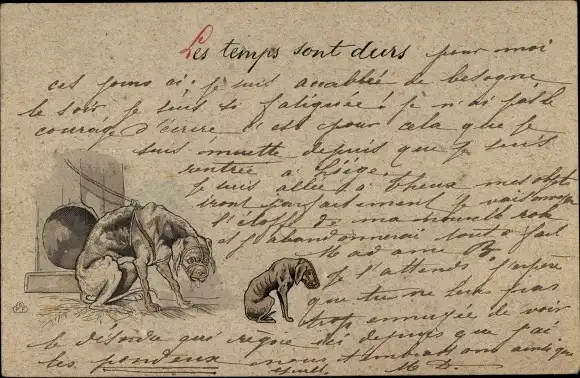 Les temps sont durs pour moi
ces jours ci. je suis accablée de besogne
le soir je suis si fatiguée je n'ai pas le
courage d'écrire c'est pour cela que je
suis muette depuis que je suis
rentrée à Liége.
Je suis allée à Theux mes
iront parfaitement je vais envoyer
l'étoffe de ma nouvelle robe
et j'abandonnerai tout à fait
Madame B
Je t'attends j'espère
que tu ne seras pas
trop ennuyée de voir
le désordre qui règne ici depuis que j'ai
les pondeux nous
M D.